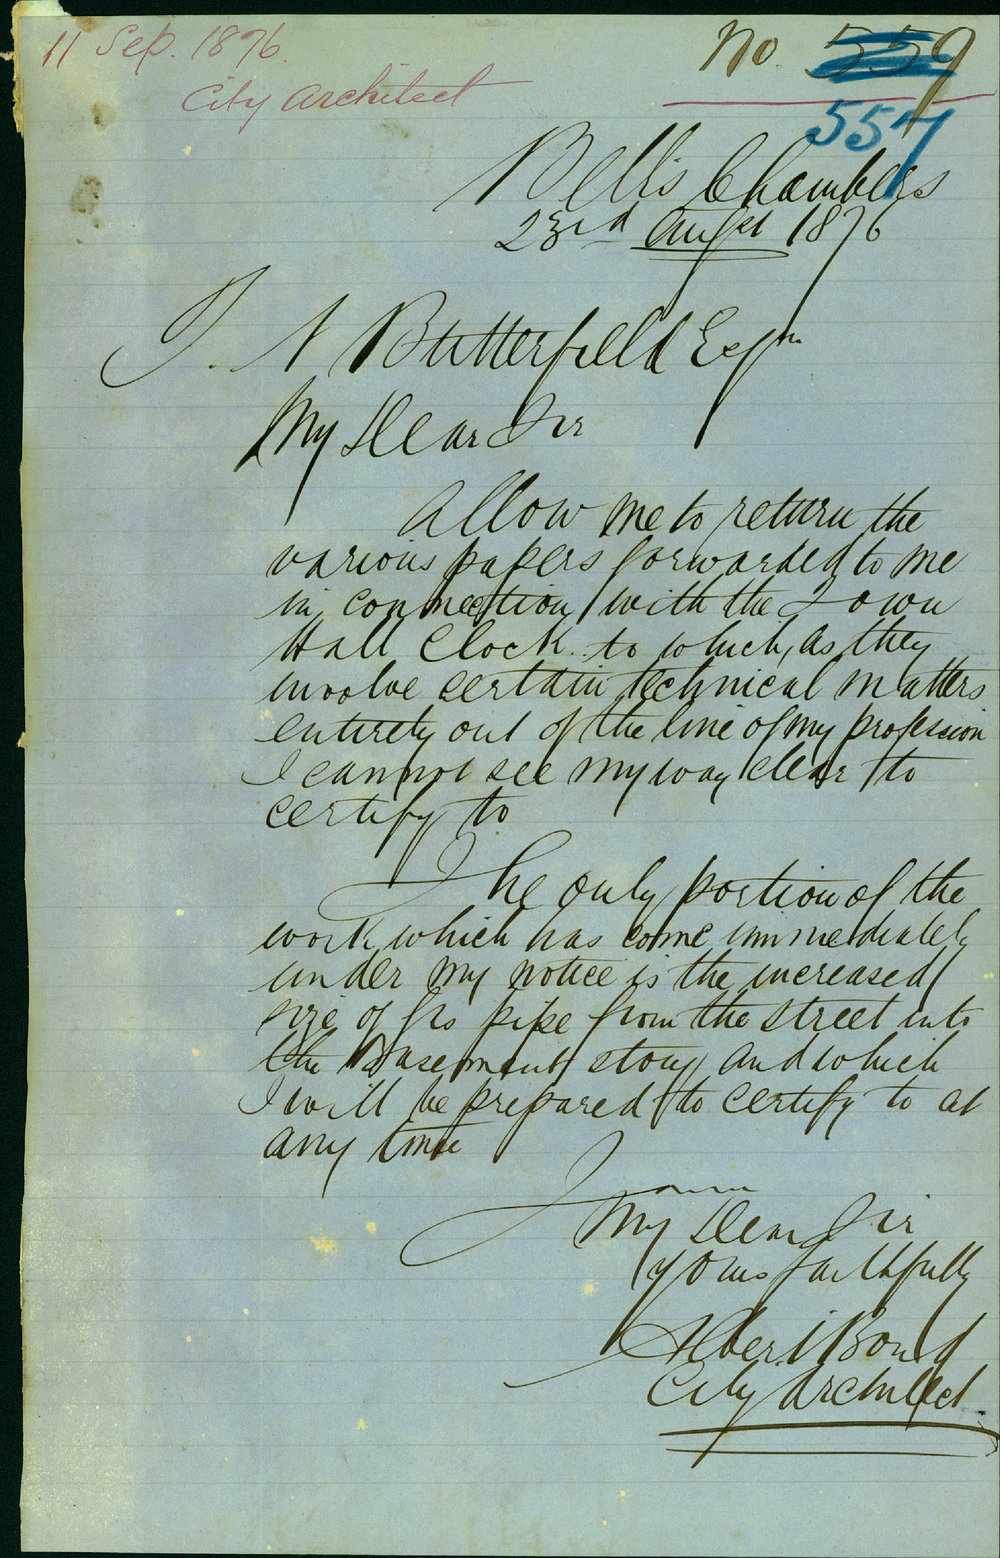 11 Sep. 1876.
City Architect
No. 559
557
Bell's Chambers
23rd Augst 1876
J. N Butterfield Esqre
My Dear Sir
Allow me to return the
various papers forwarded to me
in connection with the Town
Hall Clock to which, as they
involve certain technical matters
entirely out of the line of my profession
I cannot see my way clear to
certify to
The only portion of the
work which has come immediately
under my notice is the increased
size of gas pipe from the street into
the Basement story and which
I will be prepared to certify to at
any time
I am
My Dear Sir
yours faithfully
Albert Bond
City Architect